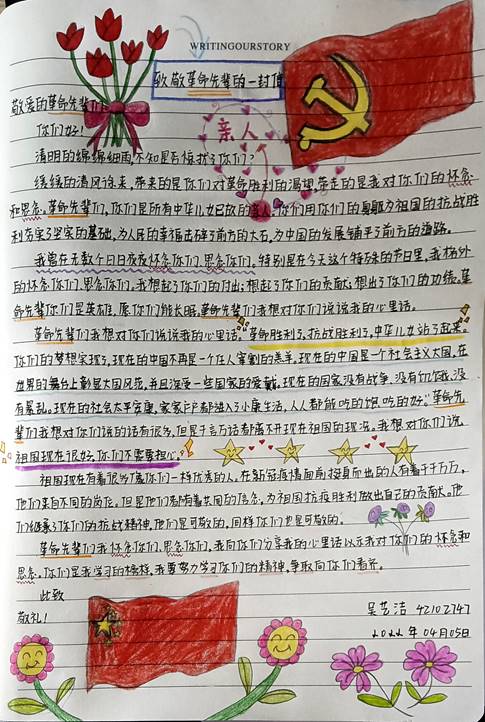 WRITINGOURSTORY
致敬革命先辈的一封信
敬爱的革命先辈们:
亲人
你们好!
清明的绵绵细雨,不知是否惊扰了你们?
缓缓的清风徐来,带来的是你们对革命胜利的渴望,带走的是我对你们的怀念
和思念。革命先辈们,你们是所有中华儿女已故的亲人。你们用你们的身躯为祖国的抗战胜
利夯实了坚实的基础,为人民的幸福击碎了前方的大石,为中国的发展铺平了前方的道路。
我曾在无数个日日夜夜怀念你们,思念你们。特别是在今天这个特殊的节日里,我格外
的怀念你们,思念你们。我想起了你们的付出;想起了你们的贡献;想出了你们的功绩。革
命先辈你们是英雄,愿你们能长眠。革命先辈我想对你们说说我的心里话。
革命先辈们我想对你们说说我的心里话。革命胜利了,抗战胜利了,中华儿女站了起来。
你们的梦想实现了,现在的中国不再是一个任人宰割的羔羊。现在的中国是一个社会主义大国,在
世界的舞台上彰显大国风范,并且深受一些国家的爱戴。现在的国家没有战争、没有饥饿、没
有暴乱。现在的社会太平安康,家家户户都进入了小康生活,人人都能吃的饱,吃的好。革命先
辈们我想对你们说的话有很多,但是千言万语都离不开现在祖国的现况。我想对你们说,
祖国现在很好,你们不需要担心。
祖国现在有着很多像你们一样优秀的人。在新冠疫情面前,挺身而出的人有千千万万,
他们来自不同的岗位。但是他们都有着共同的信念,为祖国抗疫胜利做出自己的贡献。他
们继承了你们的抗战精神,他们是可敬的,同样你们也是可敬的。
革命先辈们我怀念你们,思念你们,我向你们分享我的心里话以示我对你们的怀念和
思念。你们是我学习的榜样,我要努力学习你们的精神,争取向你们看齐。
此致
敬礼!
吴艺洁 42102747
2022年04月05日